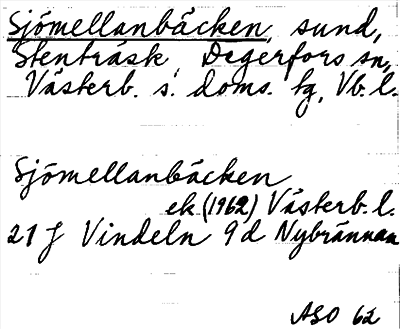 Sjömellanbäcken, sund,
Stenträsk, Degerfors sn,
Västerb. s. doms. tg, Vb. l.
Sjömellanbäcken
ek (1962) Västerb. l.
21 J Vindeln 9d Nybrännan
ASO 62